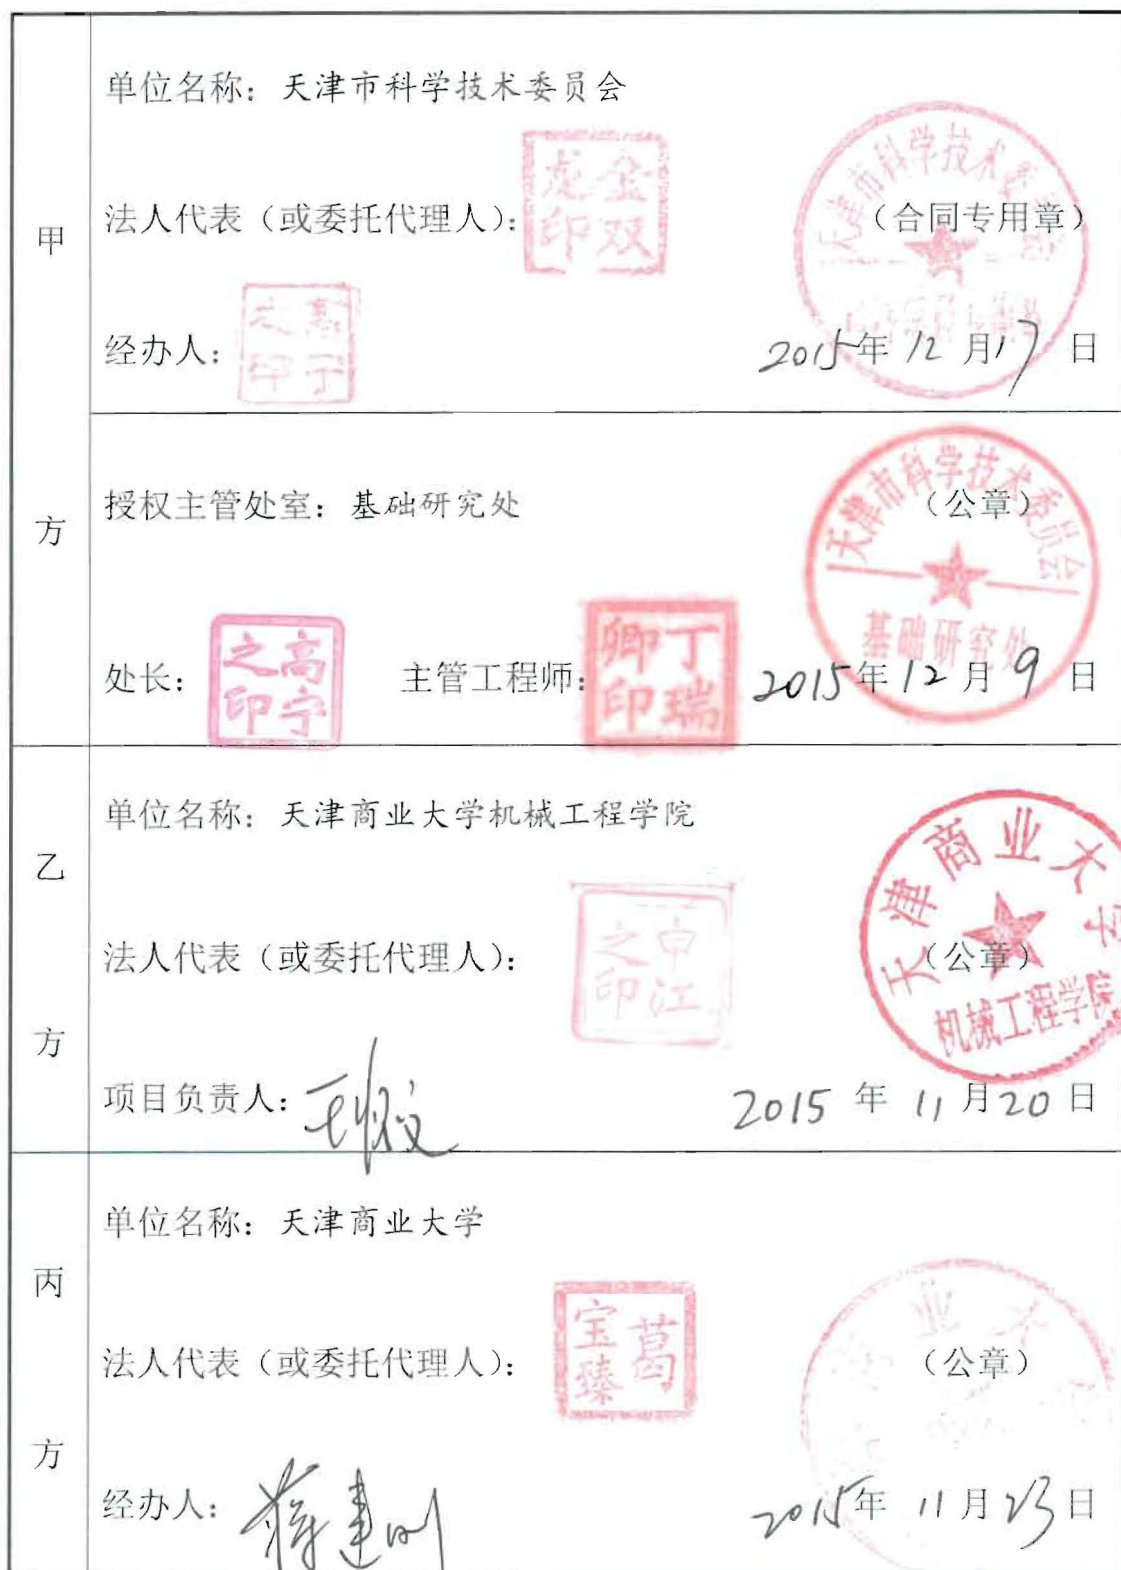 甲方
单位名称：天津市科学技术委员会
法人代表（或委托代理人）：
金双龙印
天津市科学技术委员会
（合同专用章）
经办人：
2015年12月17日
授权主管处室：基础研究处
（公章）
天津市科学技术委员会
基础研究处
处长：
高宁之印
主管工程师：
丁瑞卿印
2015年12月9日
乙方
单位名称：天津商业大学机械工程学院
法人代表（或委托代理人）：
申江之印
天津商业大学
机械工程学院
（公章）
项目负责人：
2015年11月20日
丙方
单位名称：天津商业大学
法人代表（或委托代理人）：
葛宝臻
（公章）
经办人：蒋建刚
2015年11月23日